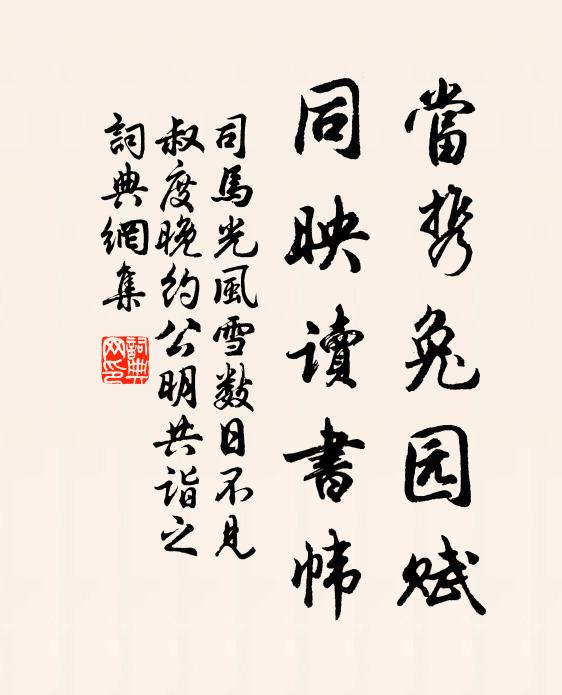 當携兔园赋
同映讀書帏
司馬光風雪数日不見
叔度晚约公明共诣之
詞典網集
詞典网印